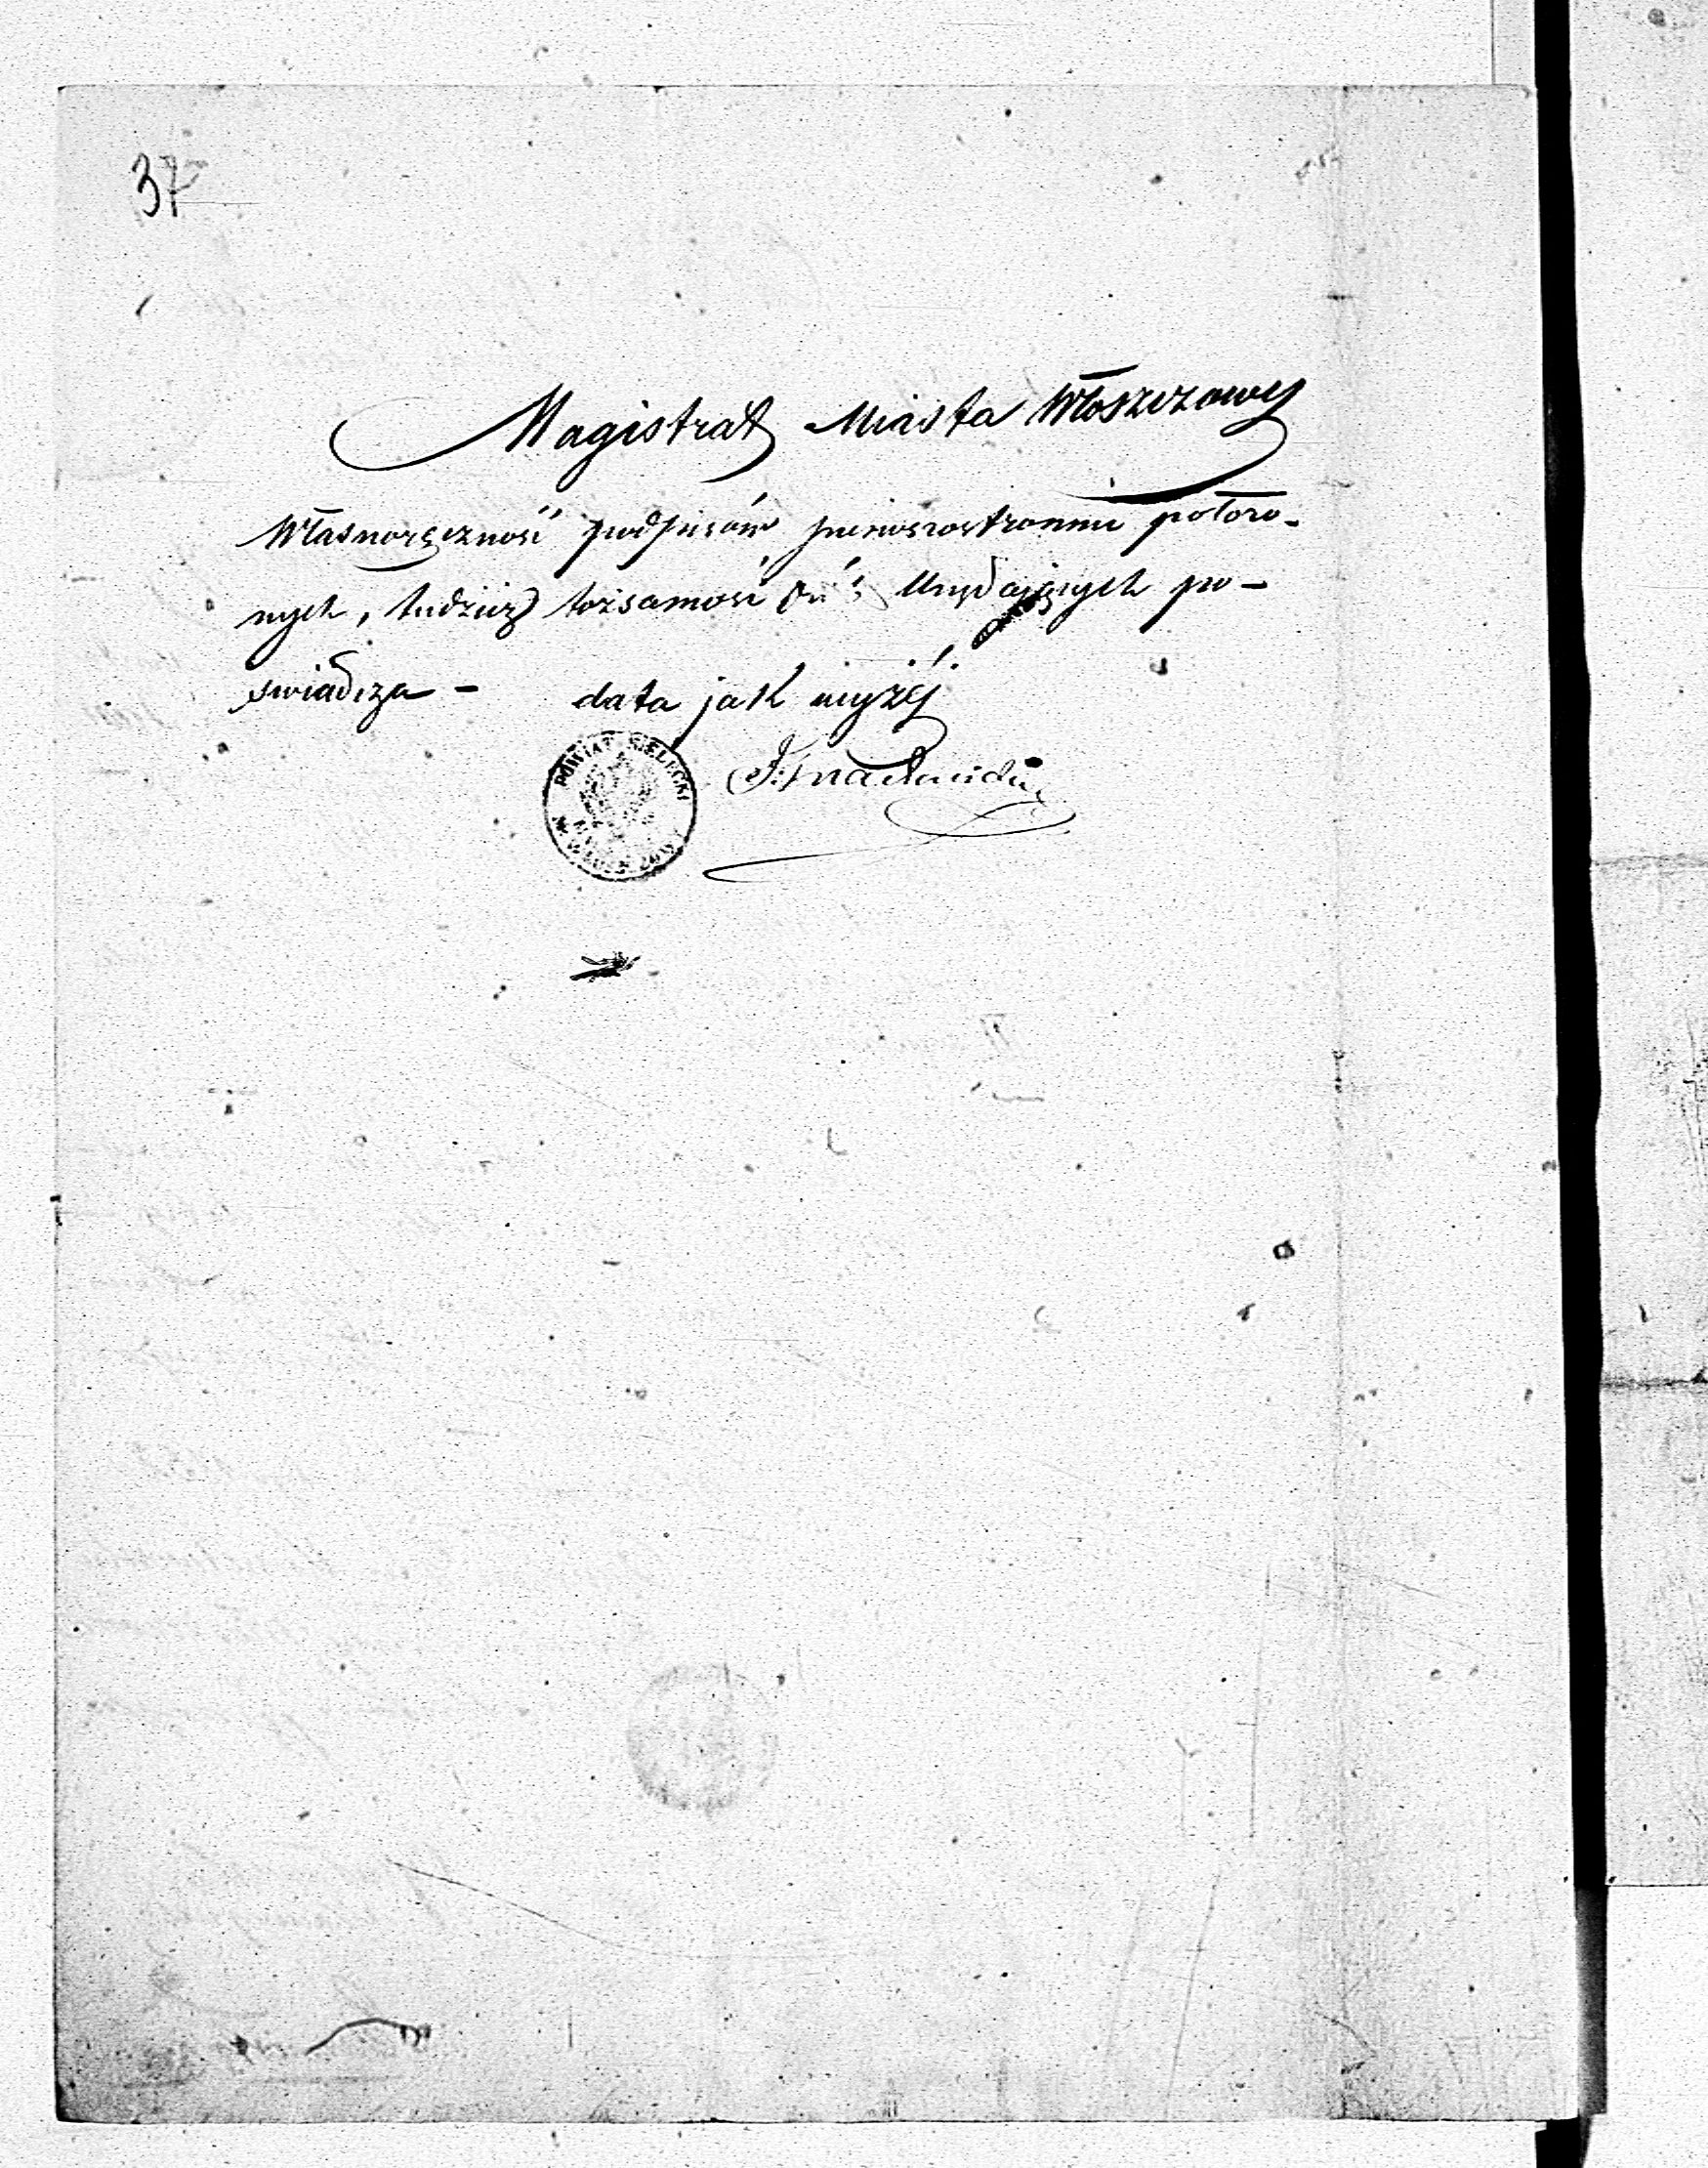 37
Magistrat Miasta Włoszczowy
Własnoręczność podpisów pierwszostronnie położo-
nych, tudzież tożsamość Osób Urzędujących po-
świadcza -
data jak wyżéj
POWIAT KIELECKI